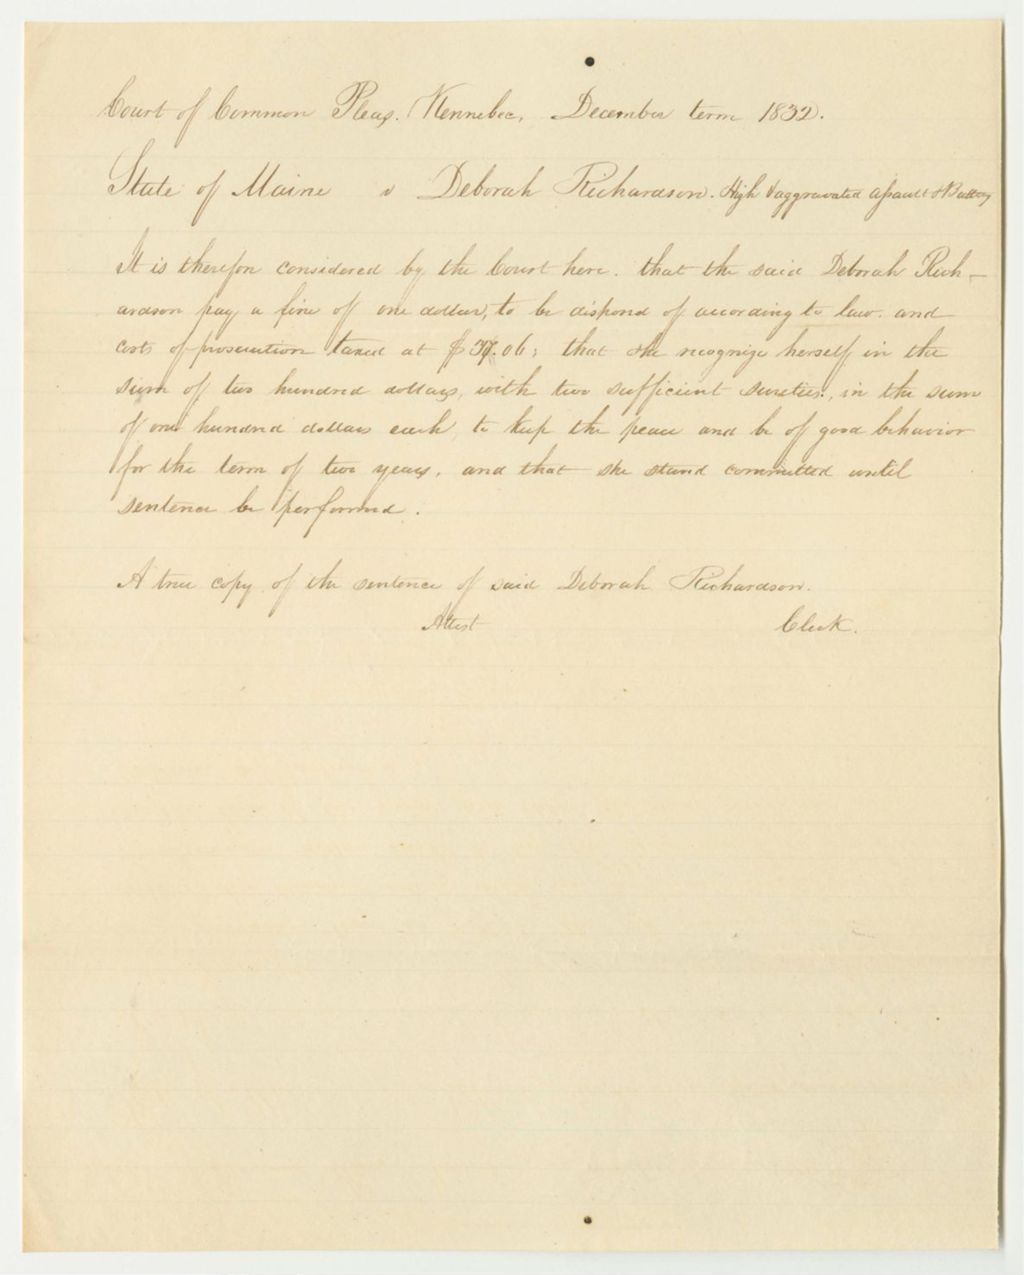 Court of Common Pleas. Kennebec, December term 1832.
State of Maine v Deborah Richardson. High & aggravated assault & Battery
It is therefore considered by the Court here. that the said Deborah Rich-
ardson pay a fine of one dollar, to be disposed of according to law. and
costs of prosecution taxed at $37.06; that she recognize herself in the
sum of two hundred dollars, with two sufficient sureties, in the sum
of one hundred dollars each, to keep the peace and be of good behavior
for the term of two years, and that she stand committed until
sentence be performed.
A true copy of the sentence of said Deborah Richardson.
Attest Clerk.